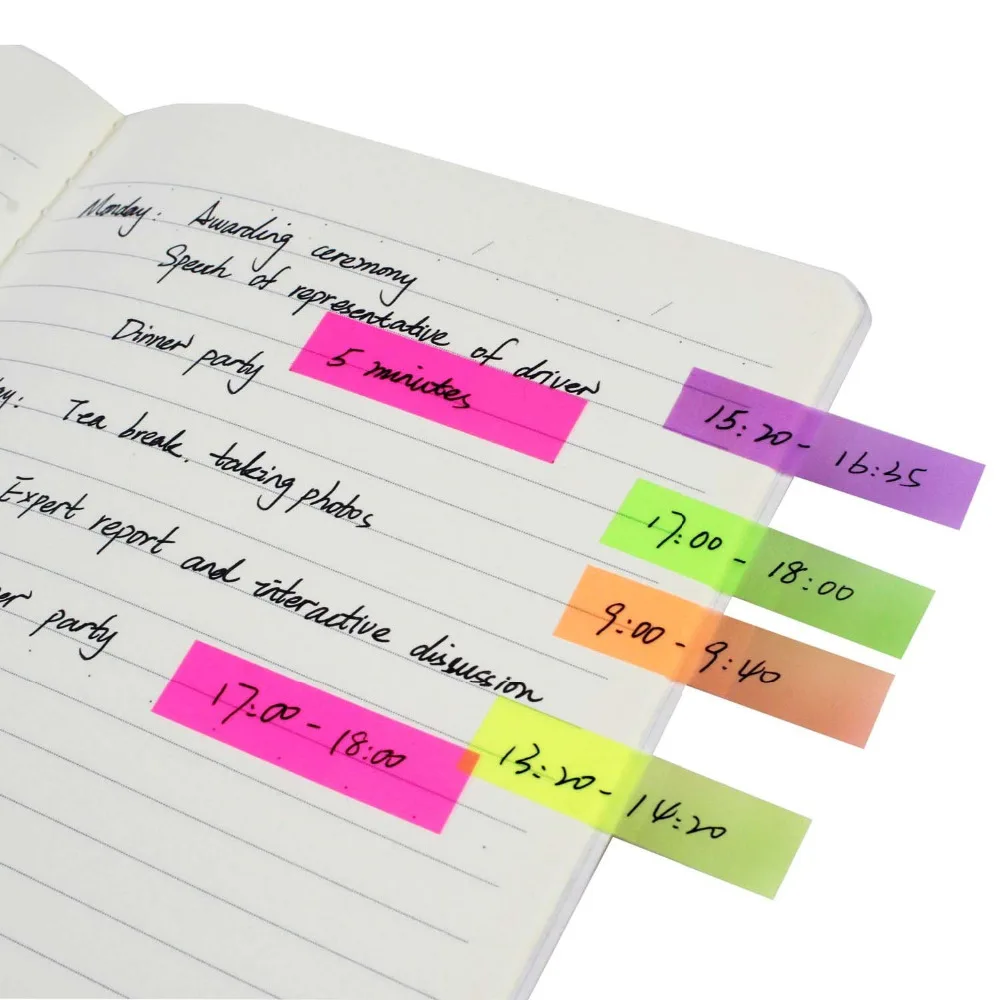 Monday: Awarding ceremony
Speech of representative of driver
5 minutes
15:20 - 16:35
Dinner party
17:00 - 18:00
ay: Tea break. taking photos
9:00 - 9:40
Expert report and interactive discussion
13:20 - 14:20
er party
17:00 - 18:00